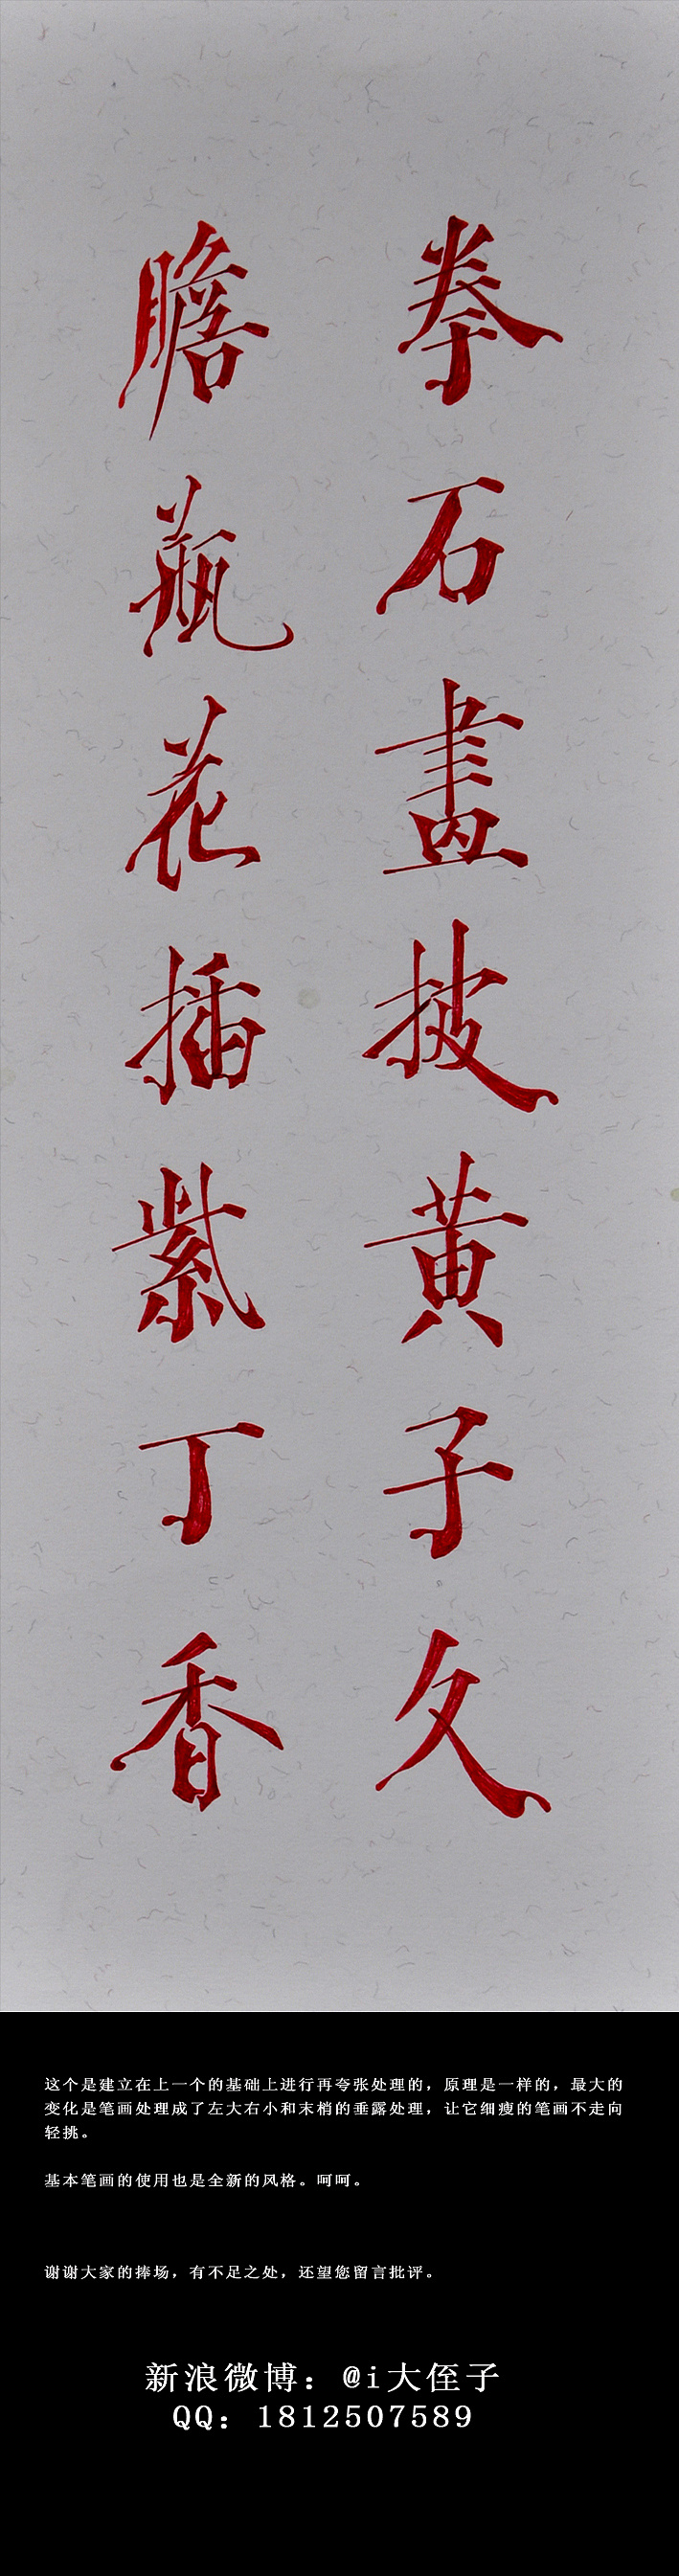 拳石畫披黄子久
瞻瓶花插紫丁香
这个是建立在上一个的基础上进行再夸张处理的，原理是一样的，最大的
变化是笔画处理成了左大右小和末梢的垂露处理，让它细瘦的笔画不走向
轻挑。
基本笔画的使用也是全新的风格。呵呵。
谢谢大家的捧场，有不足之处，还望您留言批评。
新浪微博：@i大侄子
QQ：1812507589